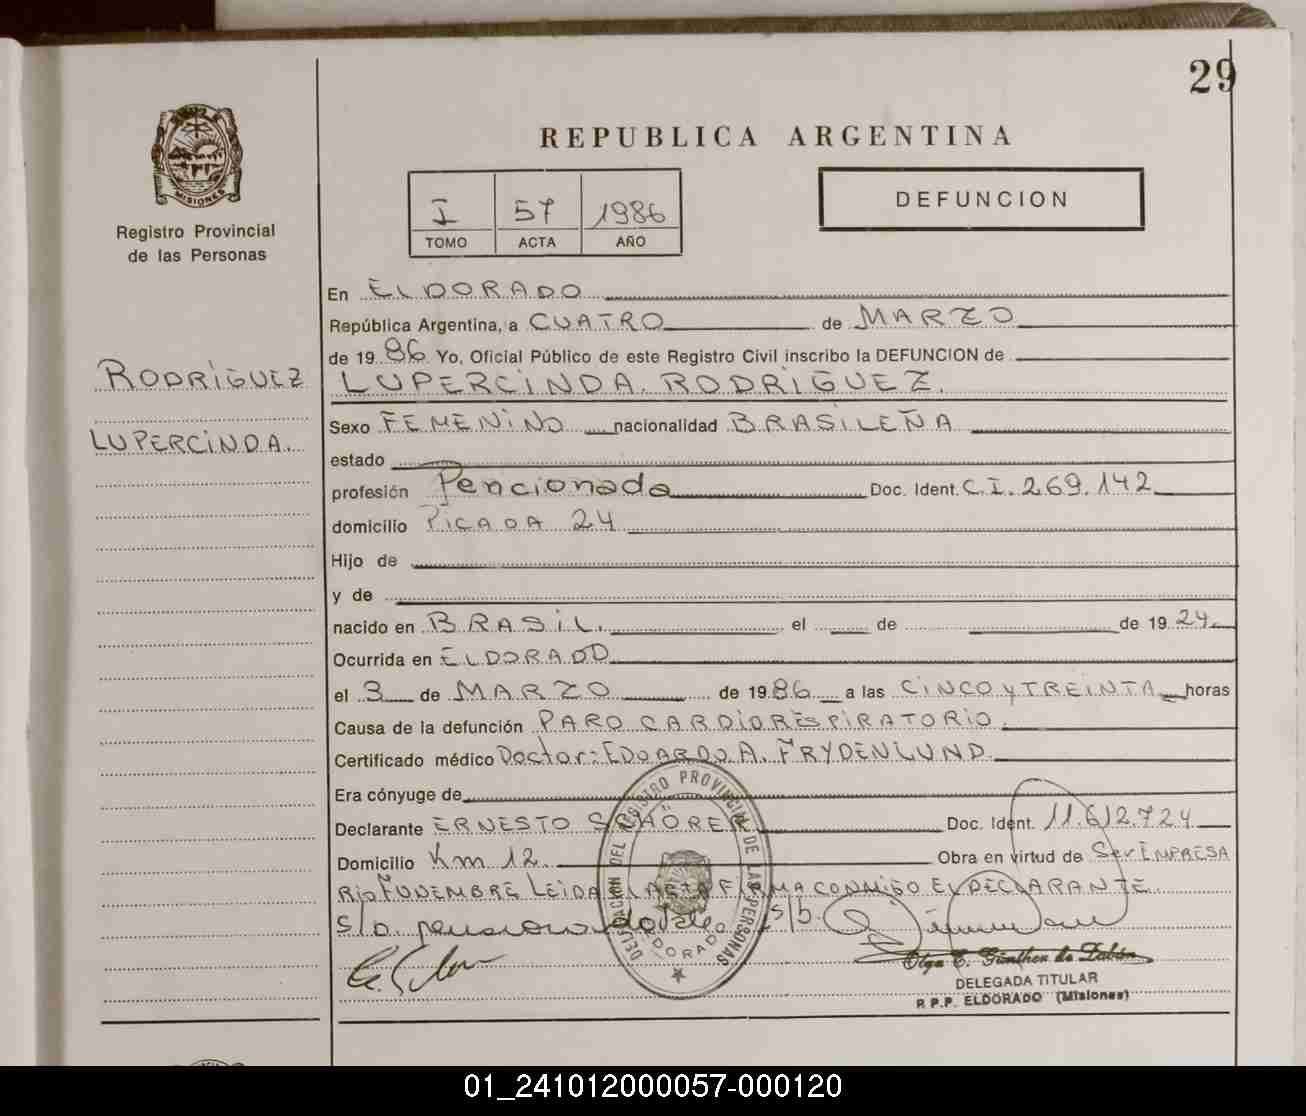 29
REPUBLICA ARGENTINA
MISIONES
Registro Provincial
de las Personas
I 57 1986
TOMO ACTA AÑO
DEFUNCION
En ELDORADO
República Argentina, a CUATRO de MARZO
de 1986 Yo, Oficial Público de este Registro Civil inscribo la DEFUNCION de
RODRIGUEZ
LUPERCINDA RODRIGUEZ.
LUPERCINDA.
Sexo FEMENINO nacionalidad BRASILEÑA
estado
profesión Pencionada Doc. Ident. C.I. 269.142
domicilio PICADA 24
Hijo de
y de
nacido en BRASIL. el de de 1924
Ocurrida en ELDORADO
el 3 de MARZO de 1986 a las CINCO y TREINTA horas
Causa de la defunción PARO CARDIORESPIRATORIO.
Certificado médico Doctor: EDUARDO A. FRYDENLUND.
Era cónyuge de
Declarante ERNESTO SCHÖRER Doc. Ident. 11.612.724
Domicilio Km 12. Obra en virtud de Ser EMPRESA
RIO FUNEMBRE LEIDA EL ACTA FIRMA CONMIGO EL DECLARANTE
S/b.
DELEGACION DEL REGISTRO PROVINCIAL DE LAS PERSONAS
ELDORADO
Olga E. Günther de
DELEGADA TITULAR
R.P.P. ELDORADO (Misiones)
01_241012000057-000120